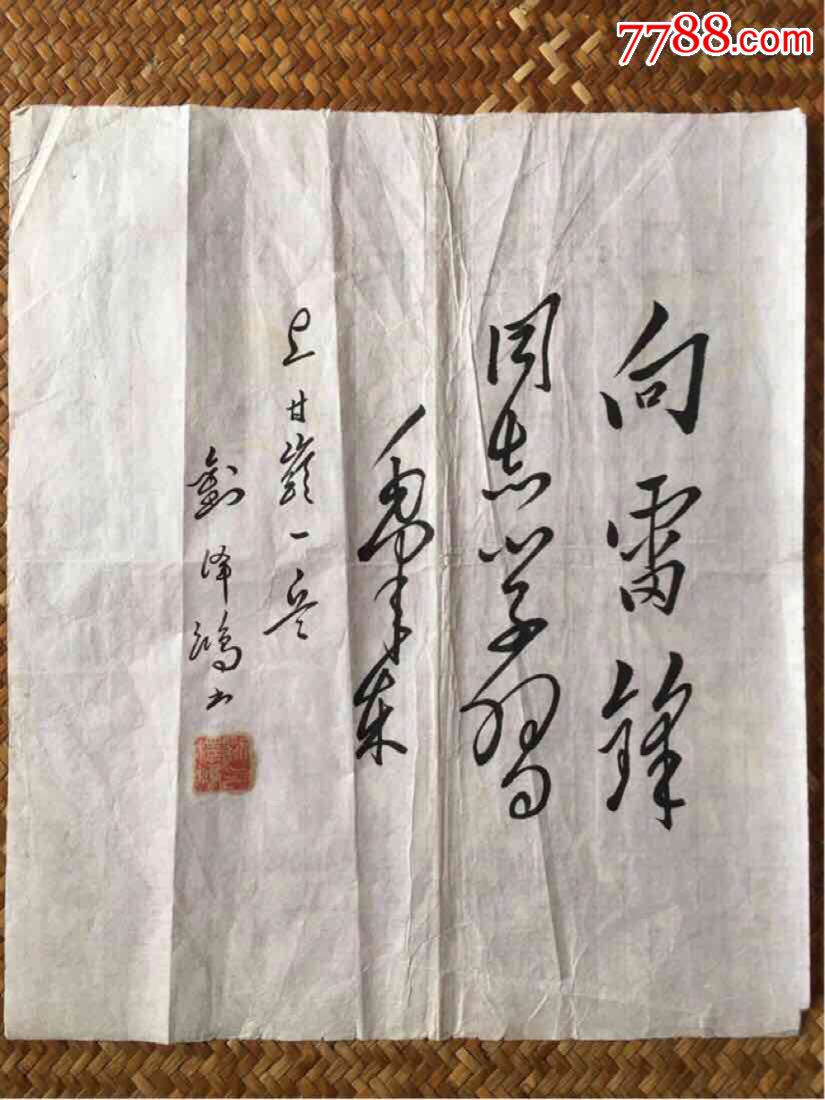 7788.com
向雷锋
同志学习
毛泽东
上甘岭一兵
刘泽鸿书